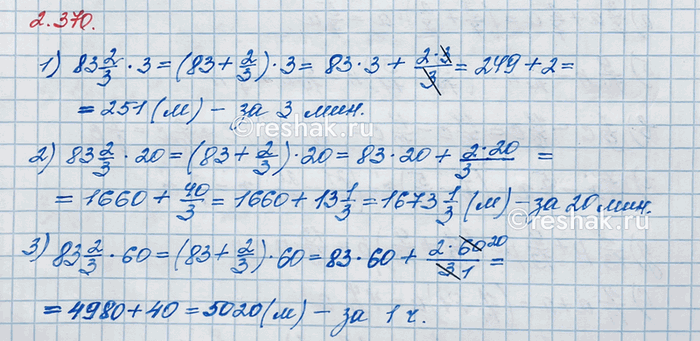 2.370.
1) 83 2/3 · 3 = (83 + 2/3) · 3 = 83 · 3 + 2·3/3 = 249 + 2 =
= 251 (м) – за 3 мин.
©reshak.ru
2) 83 2/3 · 20 = (83 + 2/3) · 20 = 83 · 20 + 2·20/3 =
= 1660 + 40/3 = 1660 + 13 1/3 = 1673 1/3 (м) – за 20 мин.
©reshak.ru
3) 83 2/3 · 60 = (83 + 2/3) · 60 = 83 · 60 + 2·60 20/3 1 =
= 4980 + 40 = 5020 (м) – за 1 ч.